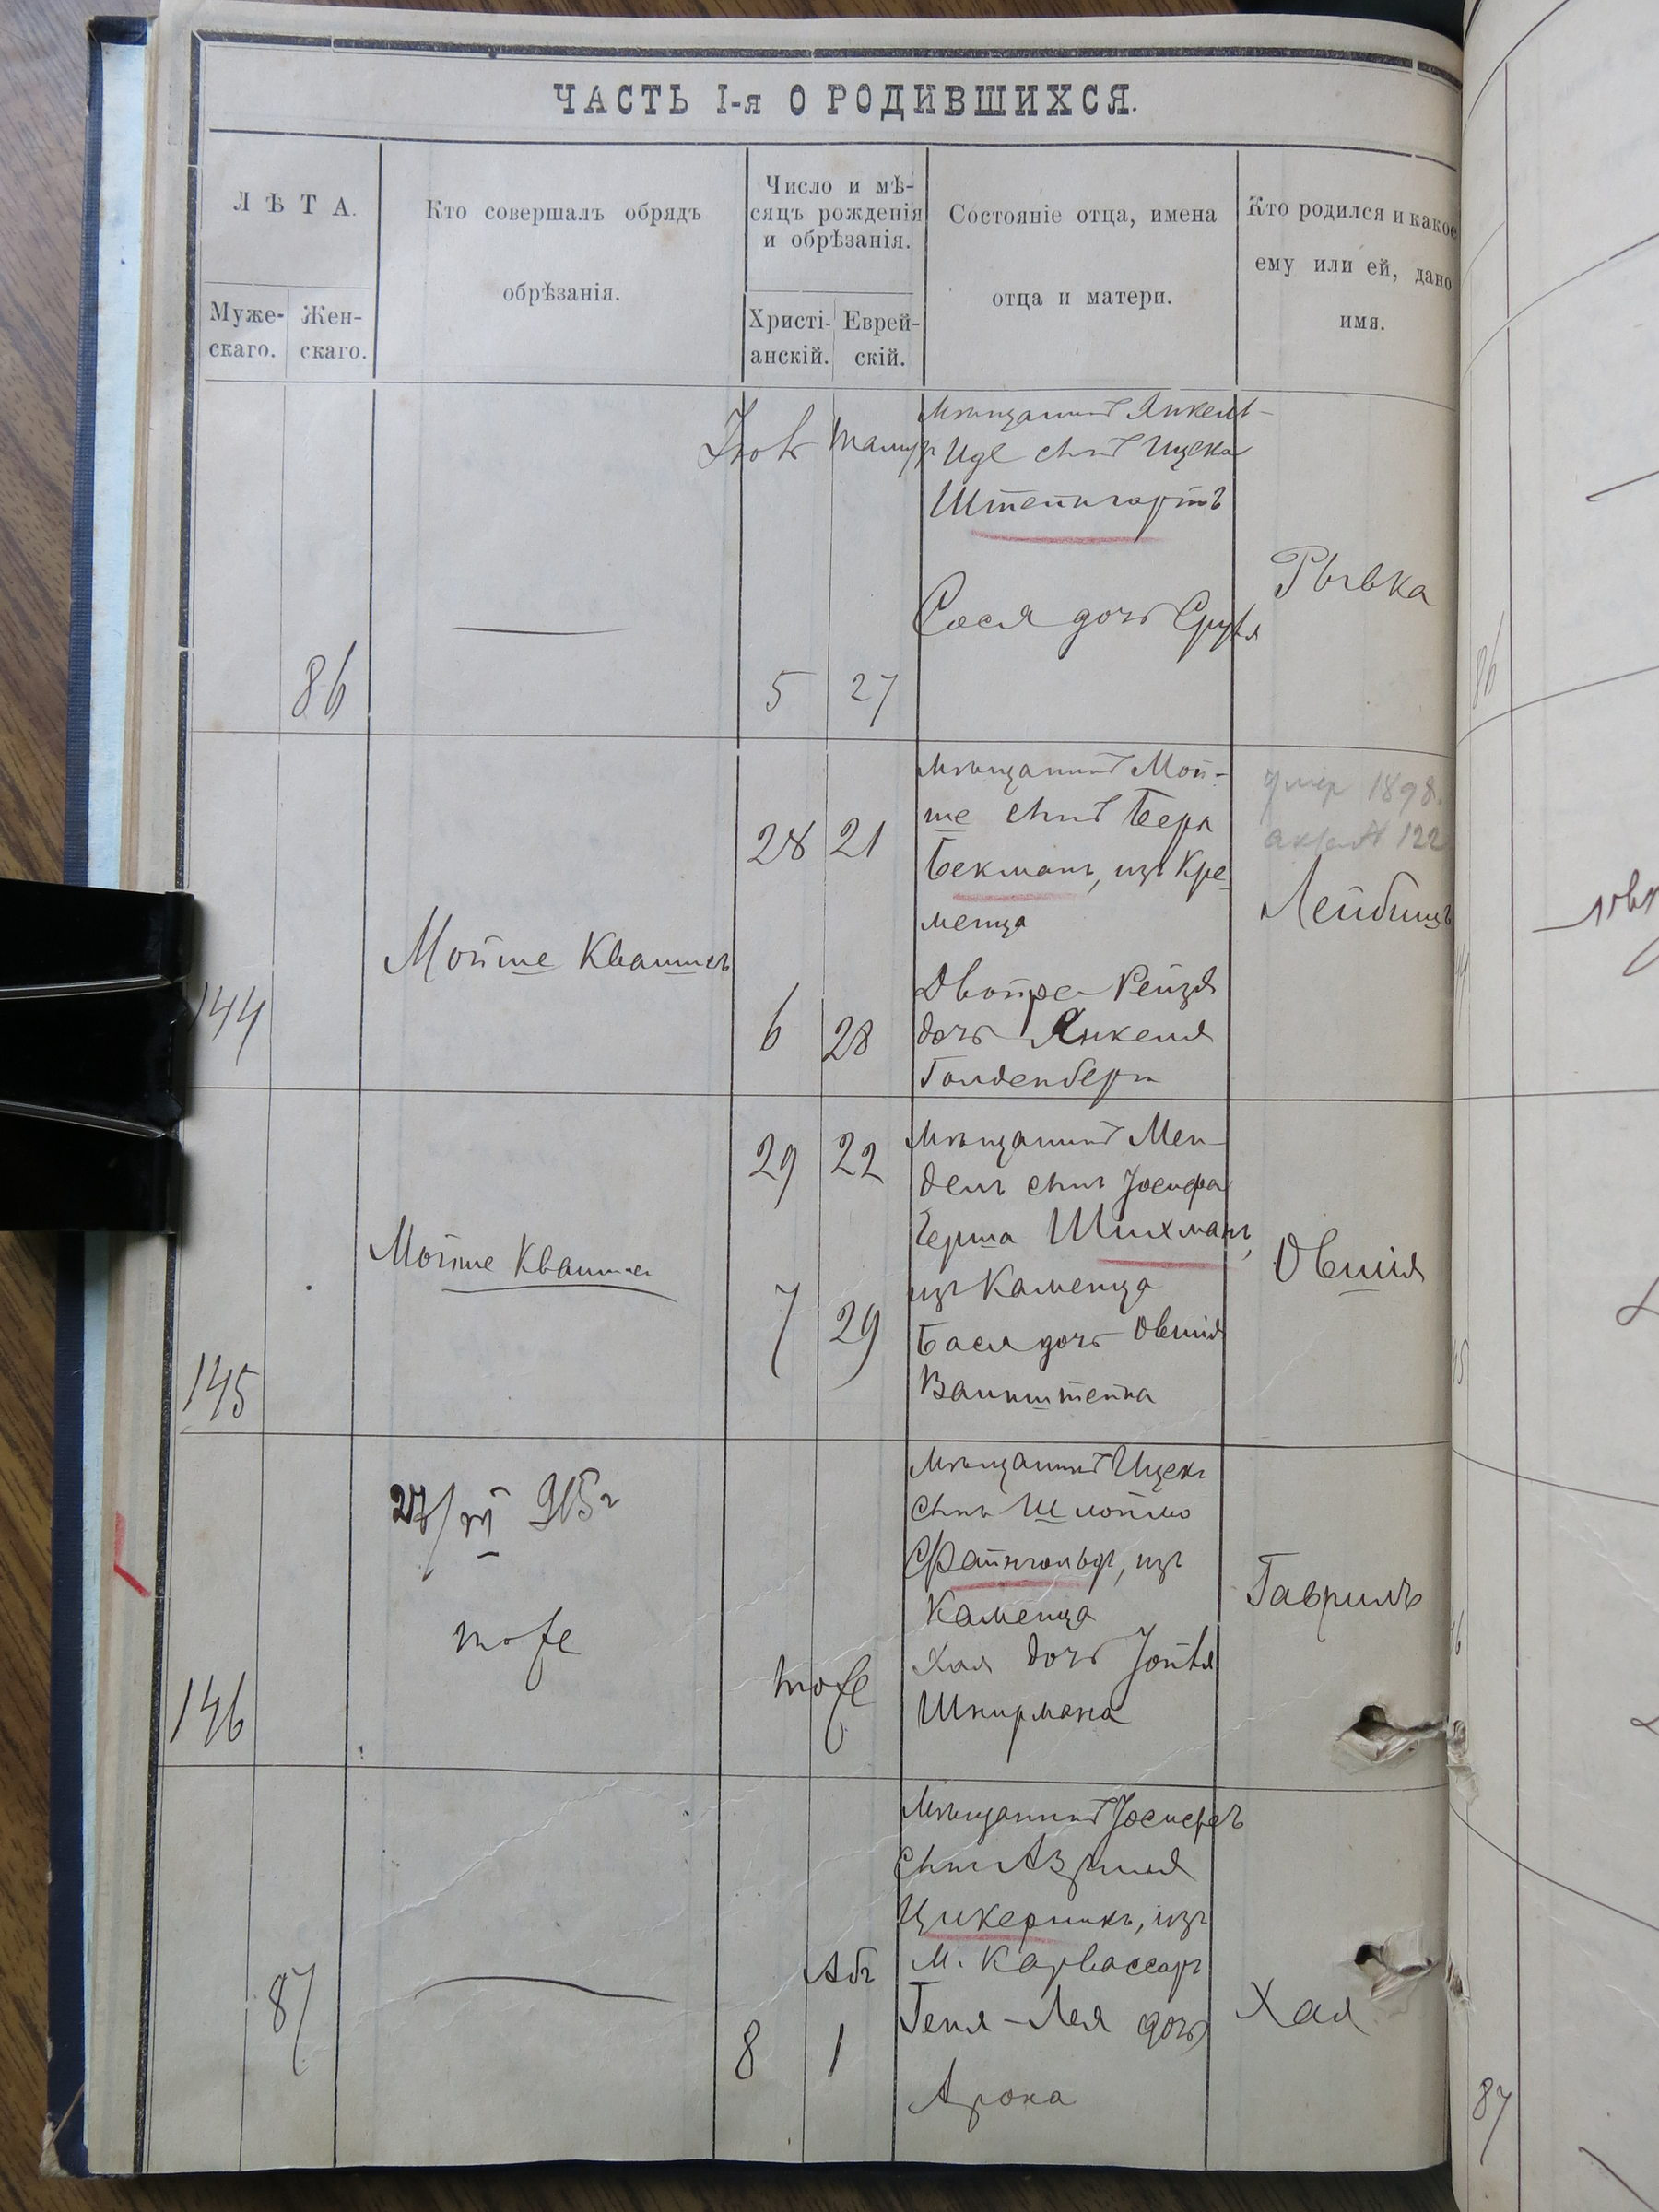 ЧАСТЬ I-я О РОДИВШИХСЯ.
ЛѢТА.
Муже-
скаго.
Жен-
скаго.
Кто совершалъ обрядъ
обрѣзанія.
Число и мѣ-
сяцъ рожденія
и обрѣзанія.
Христі-
анскій.
Еврей-
скій.
Состояніе отца, имена
отца и матери.
Кто родился и какое
ему или ей, дано
имя.
86
5
27
мѣщанинъ Янкель-
Иде сынъ Ицека
Штейнгартъ
Сося дочь Сруля
Рывка
144
Мойше Квашнеъ
28
21
6
28
мѣщанинъ Мой-
ше сынъ Бера
Бекманъ, изъ Кре-
менца
Двойра-Рейзя
дочь Янкеля
Голденберга
умер 1898.
акт № 122
Лейбишъ
145
Мойше Квашнеъ
29
22
7
29
мѣщанинъ Мен-
дель сынъ Іосифа
Герша Шихманъ,
изъ Каменца
Бася дочь Овшія
Ванштейна
Овшія
146
27/VI 915 г
тоже
тоже
мѣщанинъ Ицекъ
сынъ Шлоймо
Файнгольдъ, изъ
Каменца
Хая дочь
Шнирмана
Гаврилъ
87
8
Абъ
1
мѣщанинъ Іосифъ
сынъ Азриля
Цикерникъ, изъ
м. Карвассаръ
Геня-Лея дочь
Арона
Хая
86
87